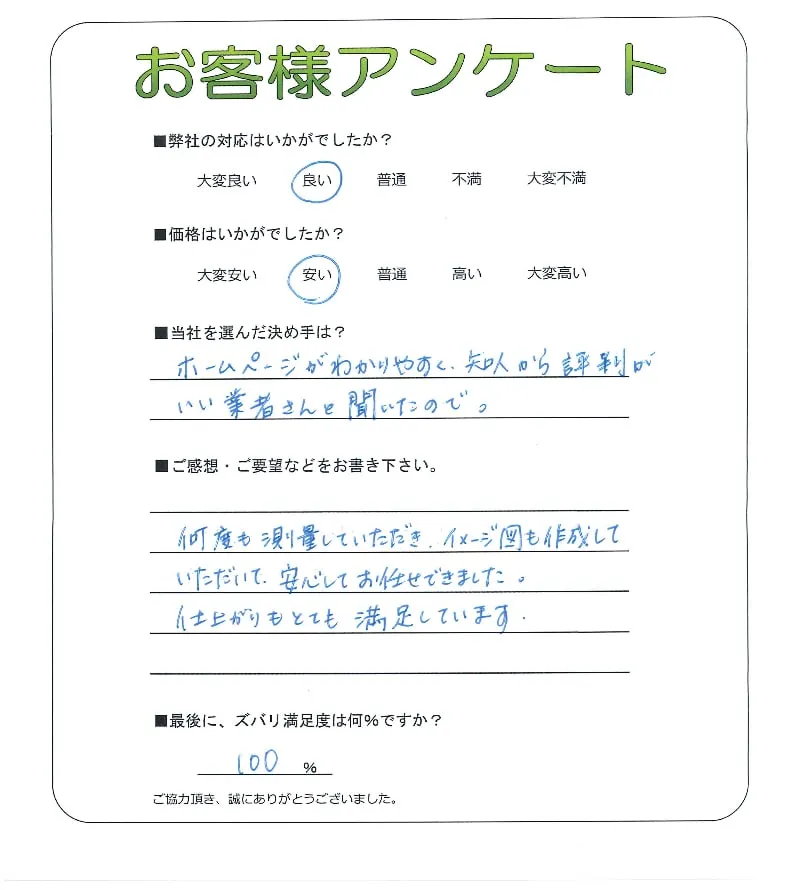 お客様アンケート
■弊社の対応はいかがでしたか？
大変良い 良い 普通 不満 大変不満
■価格はいかがでしたか？
大変安い 安い 普通 高い 大変高い
■当社を選んだ決め手は？
ホームページがわかりやすく、知人から評判が
いい業者さんと聞いたので。
■ご感想・ご要望などをお書き下さい。
何度も測量していただき、イメージ図も作成して
いただいて、安心してお任せできました。
仕上がりもとても満足しています。
■最後に、ズバリ満足度は何％ですか？
100 %
ご協力頂き、誠にありがとうございました。